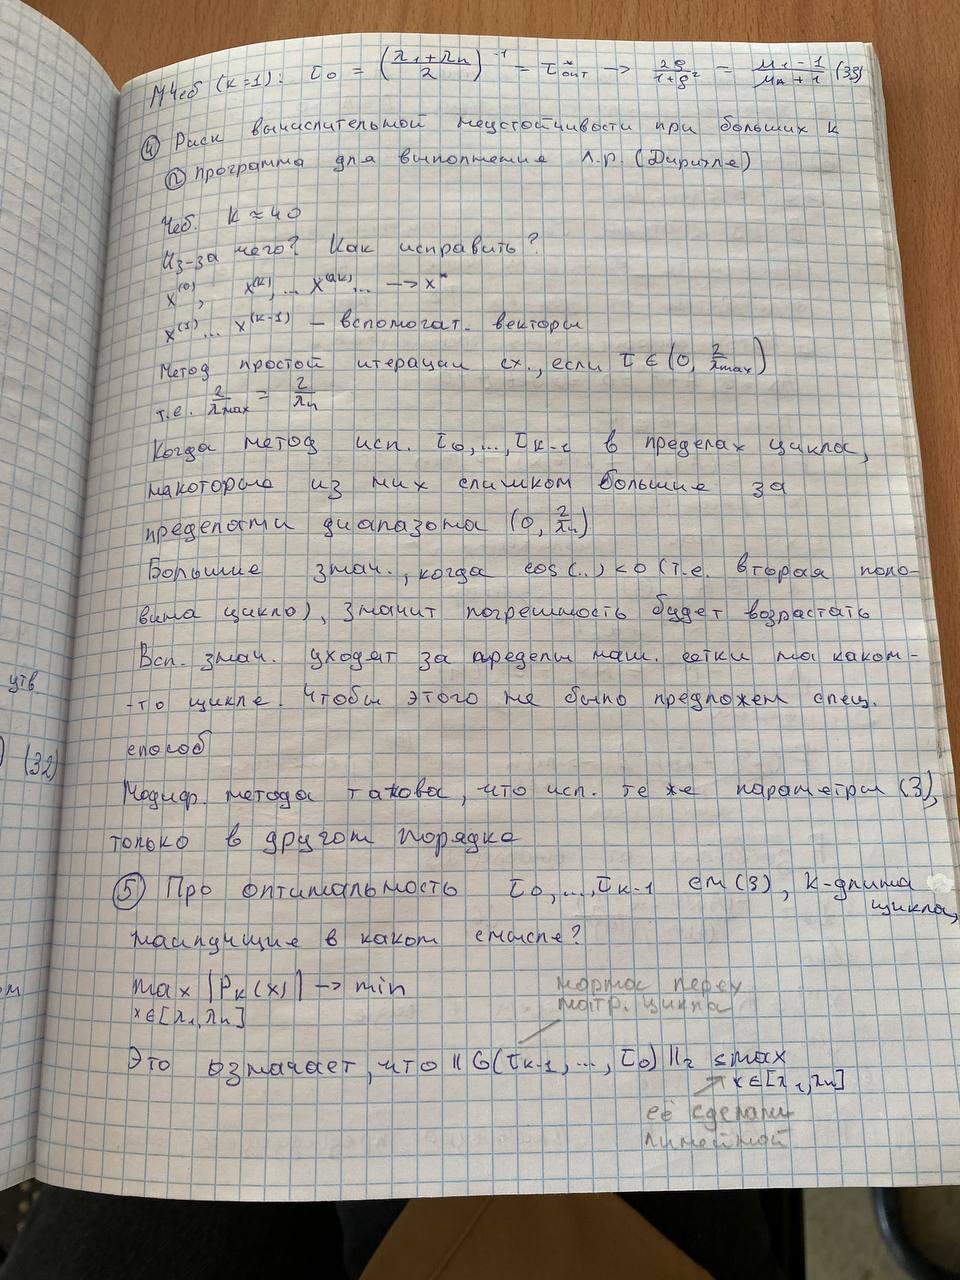 МЧеб (k=1): τ₀ = ((λ₁+λₙ)/2)⁻¹ = τ*опт → 2ρ/(1+ρ²) = (μₐ-1)/(μₐ+1) (33)
④ Риск вычислительной неустойчивости при больших k
② программа для выполнение л.р. (Дирихле)
Чеб. k ≈ 40
Из-за чего? Как исправить?
x⁽⁰⁾, x⁽ᵏ⁾,... x⁽²ᵏ⁾,... → x*
x⁽¹⁾... x⁽ᵏ⁻¹⁾ – вспомогат. векторы
Метод простой итерации сх., если τ ∈ (0, 2/λmax)
т.е. 2/λmax = 2/λₙ
Когда метод исп. τ₀,...,τk-1 в пределах цикла,
накоторые из них слишком большие за
пределами диапазона (0, 2/λₙ)
Большие знач., когда cos(..)<0 (т.е. вторая поло-
вина цикла), значит погрешность будет возрастать
Всп. знач. уходят за пределы маш. сетки на каком-
-то цикле. Чтобы этого не было предложен спец.
способ
Модиф. метода такова, что исп. те же параметры (3),
только в другом порядке
⑤ Про оптимальность τ₀,...,τk-1 см (3), k-длина
цикла,
наилучшие в каком смысле?
max |Pk(x)| → min
x∈[λ₁,λₙ]
норма перех
матр. цикла
Это означает, что ||G(τk-1,...,τ₀)||₂ ≤ max
x∈[λ₁,λₙ]
её сделали
линейной
утв
(32)